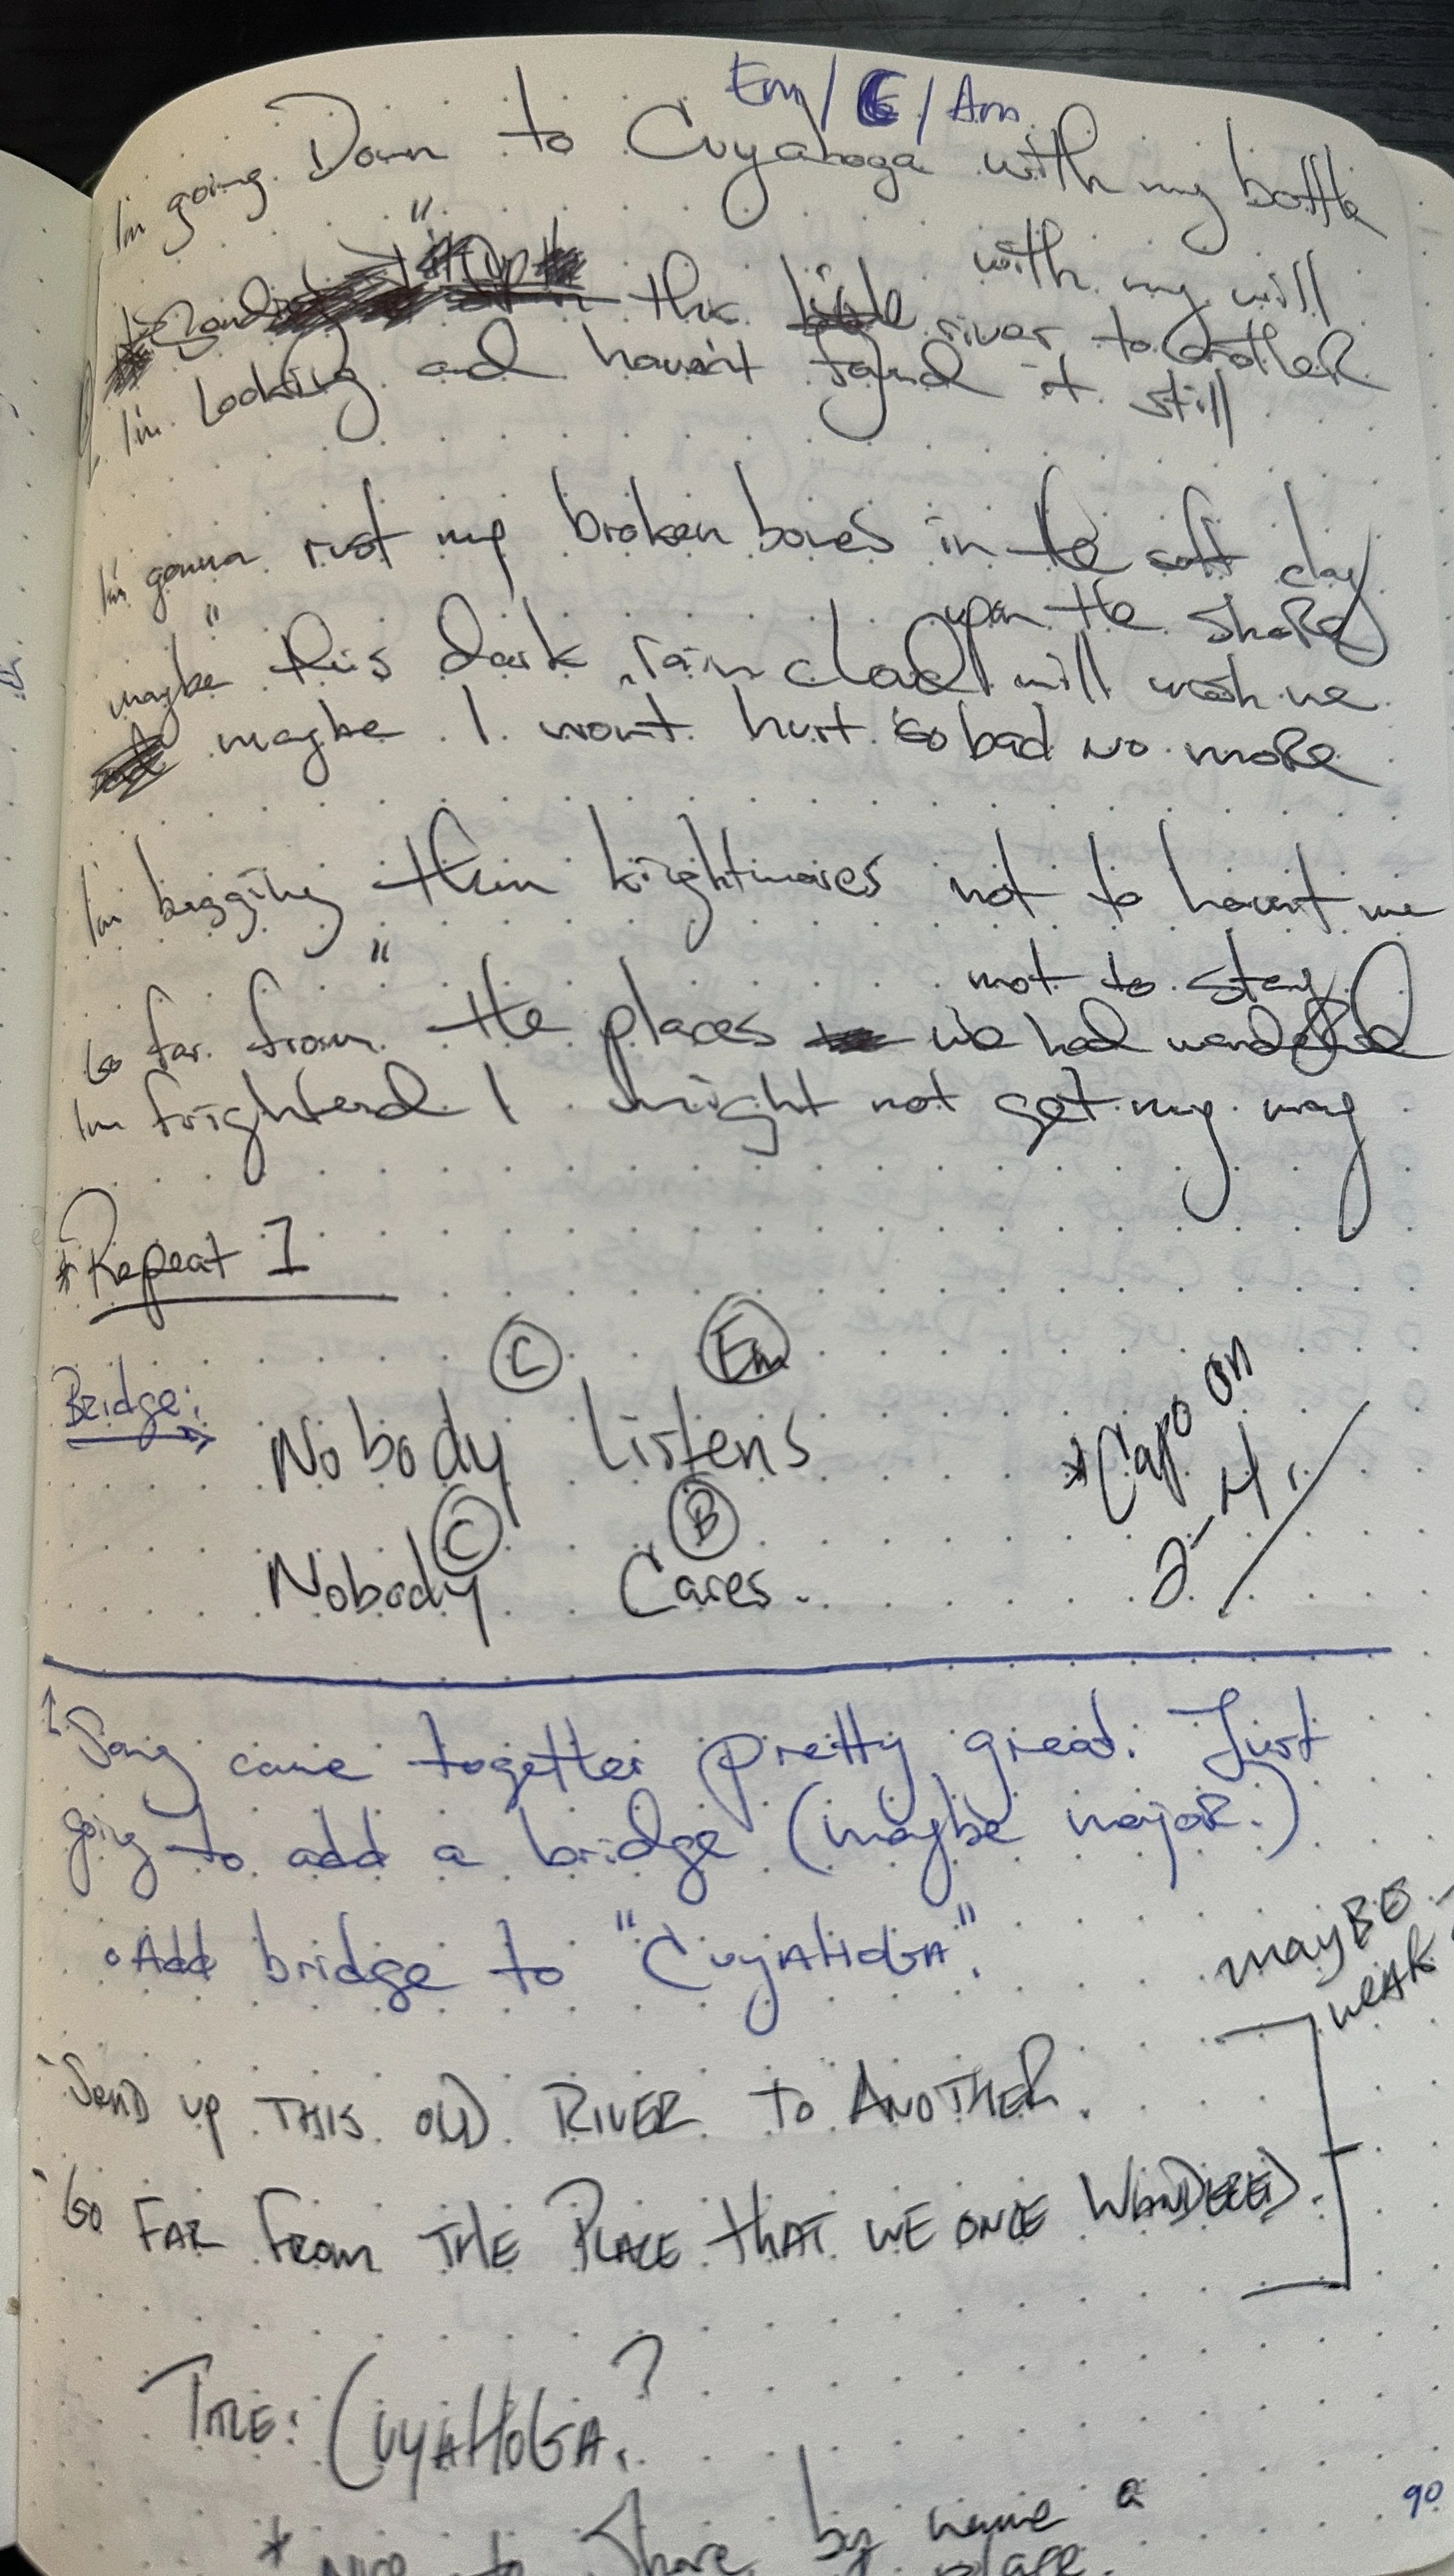 Em / C / Am
I'm going Down to Cuyahoga with my bottle
" with my will
Send up this little river to another
I'm Looking and haven't found it still
I'm gonna rest my broken bones in the soft clay
" upon the shore
maybe this dark rain cloud will wash me
maybe I won't hurt so bad no more
I'm begging them nightmares not to haunt me
" not to stay
Go far from the places we had wandered
I'm frightend I might not get my way
*Repeat 1
C Em
Bridge: Nobody listens
C B
Nobody Cares.
*Capo on
2-4.
Song came together pretty great. Just
going to add a bridge (maybe major.)
Add bridge to "CuyAHoGA".
maybe
weak
Send up THIS OLD RIVER TO ANOTHER.
Go FAR From THE PLACE tHAT WE ONCE WANDERED.
TITLE: CUYAHOGA. ?
* Nice to share by name a
place.
90